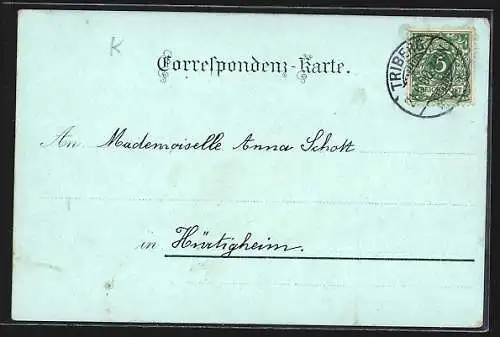 K
Correspondenz-Karte.
TRIBERG
5
REICHSPOST
An Mademoiselle Anna Schott
in Hürtigheim.